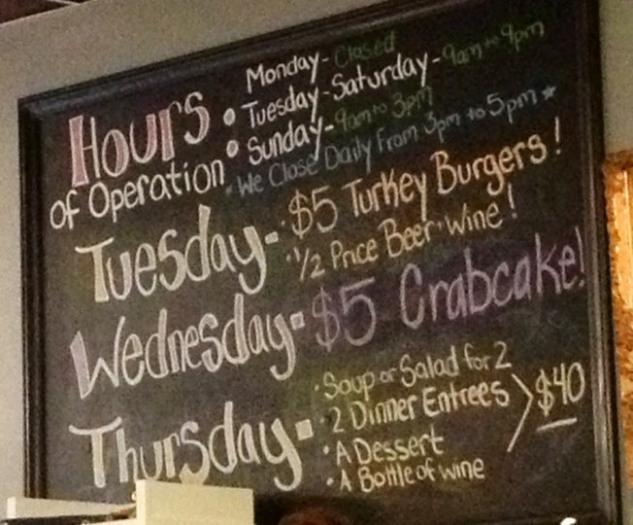 Hours of Operation
Monday - Closed
Tuesday - Saturday - 9am to 9pm
Sunday - 9am to 3pm
We Close Daily From 3pm to 5pm
Tuesday - $5 Turkey Burgers!
1/2 Price Beer + Wine!
Wednesday - $5 Crabcake!
Thursday - Soup or Salad for 2
2 Dinner Entrees
A Dessert
A Bottle of wine
$40